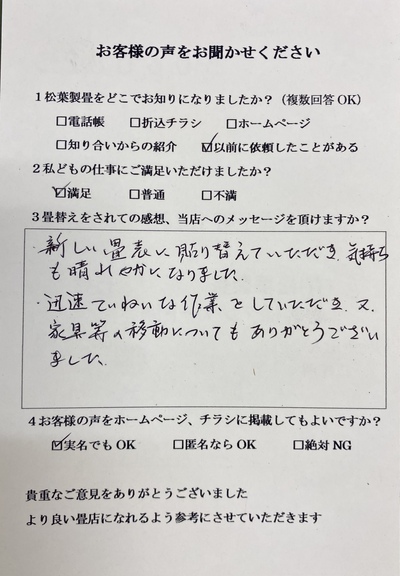 お客様の声をお聞かせください
1松葉製畳をどこでお知りになりましたか?(複数回答OK)
□電話帳 □折込チラシ □ホームページ
□知り合いからの紹介 ☑以前に依頼したことがある
2私どもの仕事にご満足いただけましたか?
☑満足 □普通 □不満
3畳替えをされての感想、当店へのメッセージを頂けますか?
・新しい畳表に貼り替えていただき、気持ち
も晴れやかになりました。
・迅速ていねいな作業をしていただき、又
家具等の移動についてもありがとうござい
ました。
4お客様の声をホームページ、チラシに掲載してもよいですか?
☑実名でもOK □匿名ならOK □絶対NG
貴重なご意見をありがとうございました
より良い畳店になれるよう参考にさせていただきます